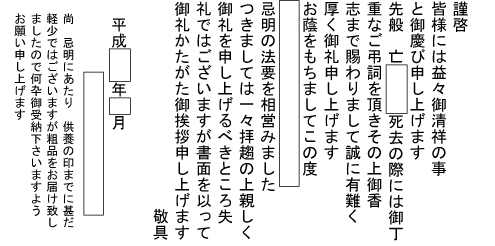 謹啓
皆様には益々御清祥の事
と御慶び申し上げます
先般　亡　死去の際には御丁
重なご弔詞を頂きその上御香
志まで賜わりまして誠に有難く
厚く御礼申し上げます
お蔭をもちましてこの度
忌明の法要を相営みました
つきましては一々拝趨の上親しく
御礼を申し上げるべきところ失
礼ではございますが書面を以って
御礼かたがた御挨拶申し上げます
敬具
平成　年　月
尚　忌明にあたり　供養の印までに甚だ
軽少ではございますが粗品をお届け致し
ましたので何卒御受納下さいますよう
お願い申し上げます